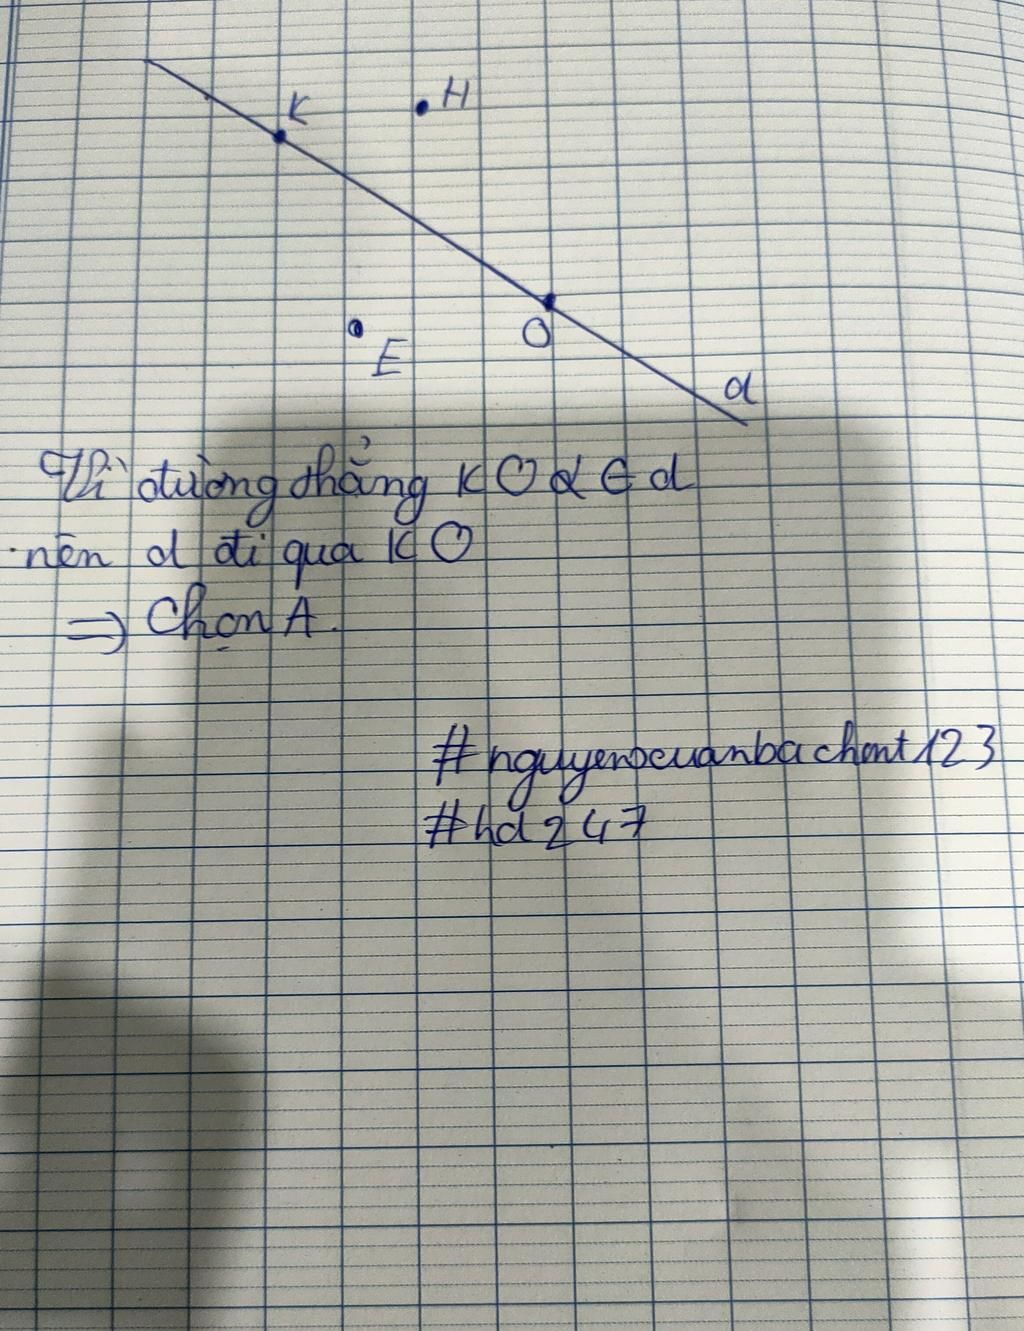 K
H
O
E
d
Vì đường thẳng KO ∈ d
nên d đi qua KO
=> Chọn A.
#nguyenxuanbachcnt123
#hd247